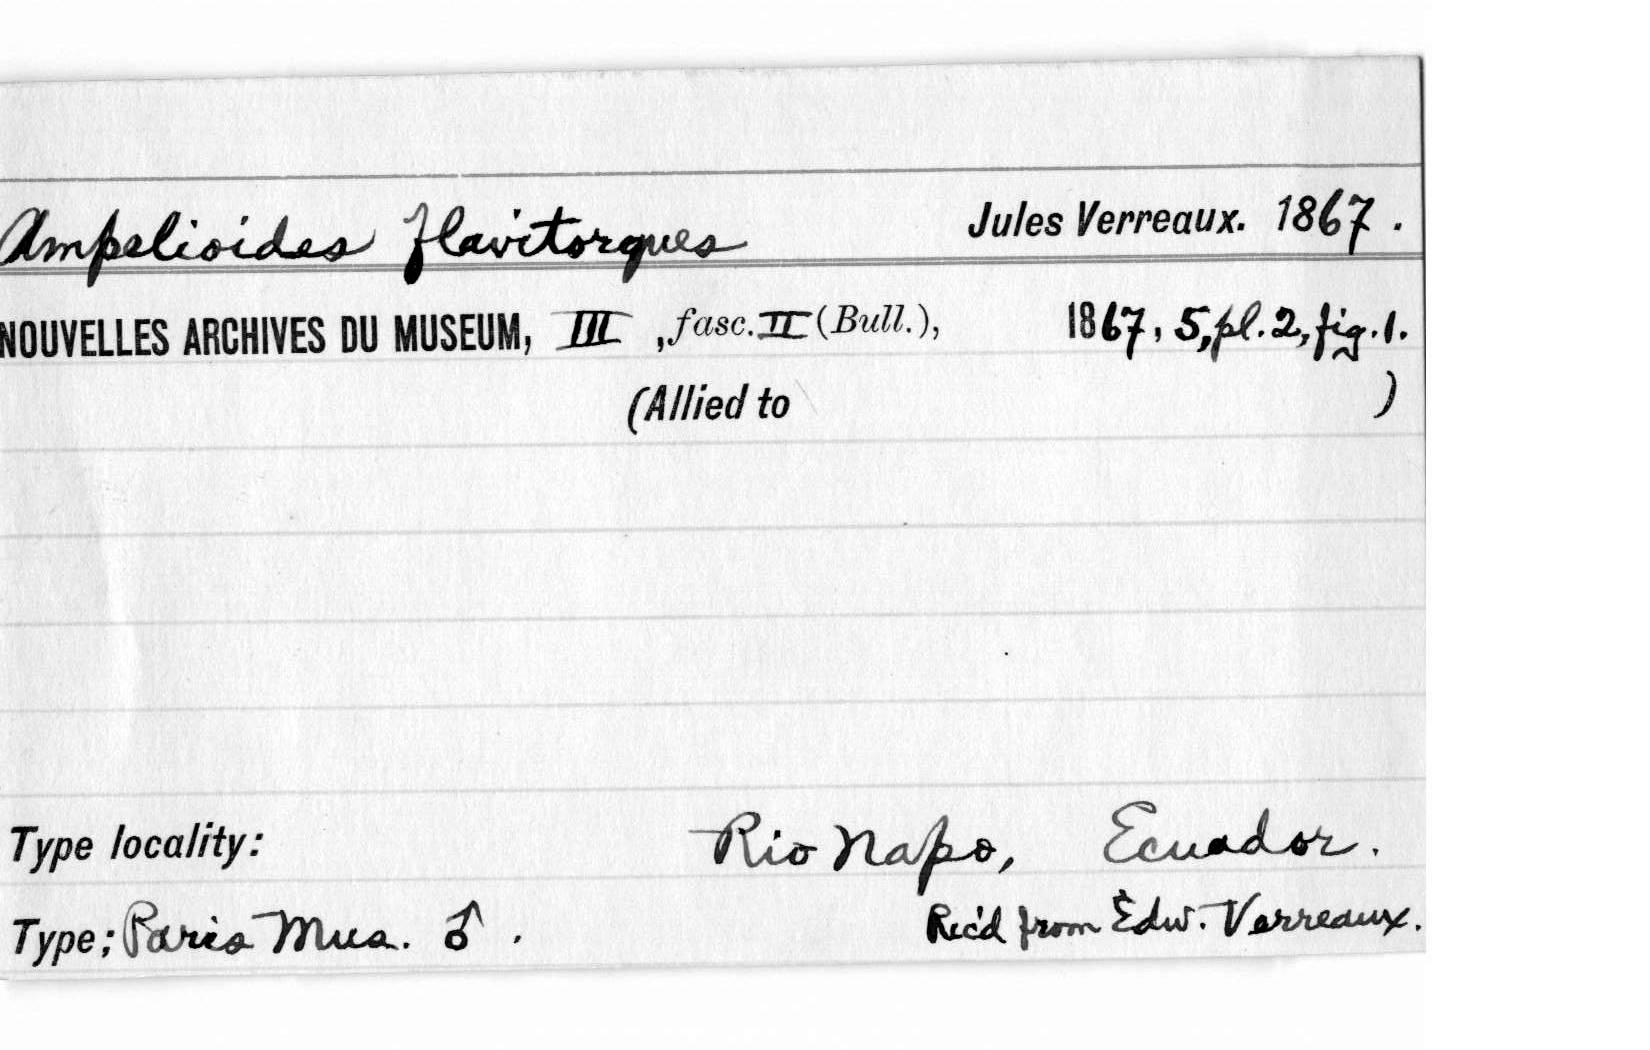 Ampelioides flavitorques Jules Verreaux. 1867.
NOUVELLES ARCHIVES DU MUSEUM, III, fasc. II (Bull.), 1867, 5, pl. 2, fig. 1.
(Allied to )
Type locality: Rio Napo, Ecuador.
Type; Paris Mus. ♂. Rec'd from Edw. Verreaux.